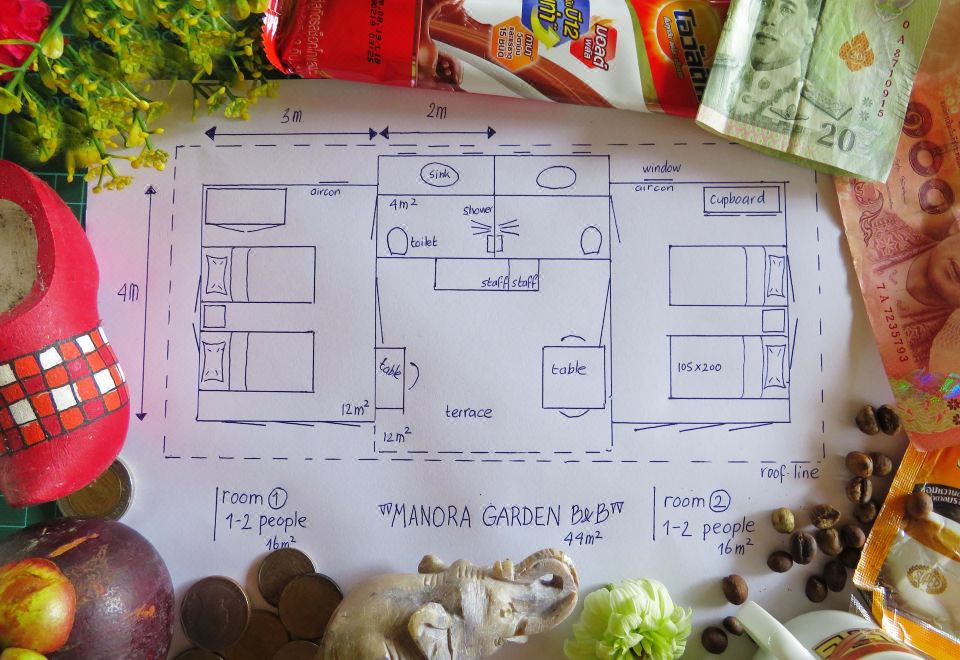 โอวัลติน
20
0A8710915
7A7235793
3m
2m
sink
window
aircon
aircon
4m²
shower
Cupboard
toilet
staff staff
4m
table
table
105x200
12m²
12m²
terrace
roof-line
room ①
1-2 people
16m²
"MANORA GARDEN B&B"
44m²
room ②
1-2 people
16m²